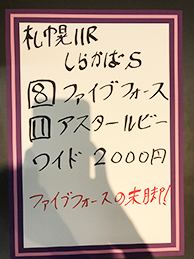 札幌11R
しらかばS
8 ファイブフォース
11 アスタールビー
ワイド 2000円
ファイブフォースの末脚!!